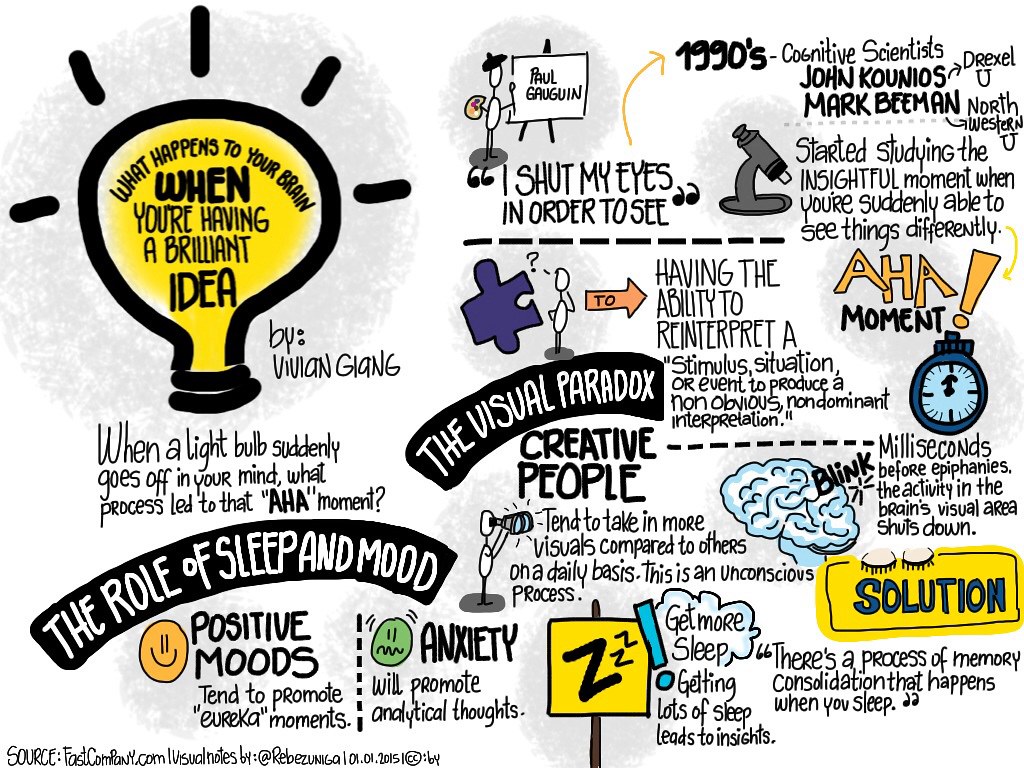 WHAT HAPPENS TO YOUR BRAIN
WHEN
YOU'RE HAVING
A BRILLIANT
IDEA
by:
VIVIAN GIANG
When a light bulb suddenly
goes off in your mind, what
process led to that "AHA" moment?
PAUL
GAUGUIN
"I SHUT MY EYES
IN ORDER TO SEE"
1990's - Cognitive Scientists
JOHN KOUNIOS
Drexel
U
MARK BEEMAN
North
western
U
Started studying the
INSIGHTFUL moment when
you're suddenly able to
see things differently.
AHA!
MOMENT
?
TO
HAVING THE
ABILITY TO
REINTERPRET A
"Stimulus, situation,
OR event to produce a
non obvious, nondominant
interpretation."
THE VISUAL PARADOX
CREATIVE
PEOPLE
Tend to take in more
visuals compared to others
on a daily basis. This is an unconscious
process.
BLINK
Milliseconds
before epiphanies.
the activity in the
brain's visual area
shuts down.
THE ROLE OF SLEEP AND MOOD
POSITIVE
MOODS
Tend to promote
"eureka" moments.
ANXIETY
will promote
analytical thoughts.
SOLUTION
Zzz
!
Get more
Sleep
Getting
lots of sleep
leads to insights.
"There's a process of memory
Consolidation that happens
when you sleep."
SOURCE: FastCompany.com | Visualnotes by: @Rebezuniga | 01.01.2015 | (cc): by